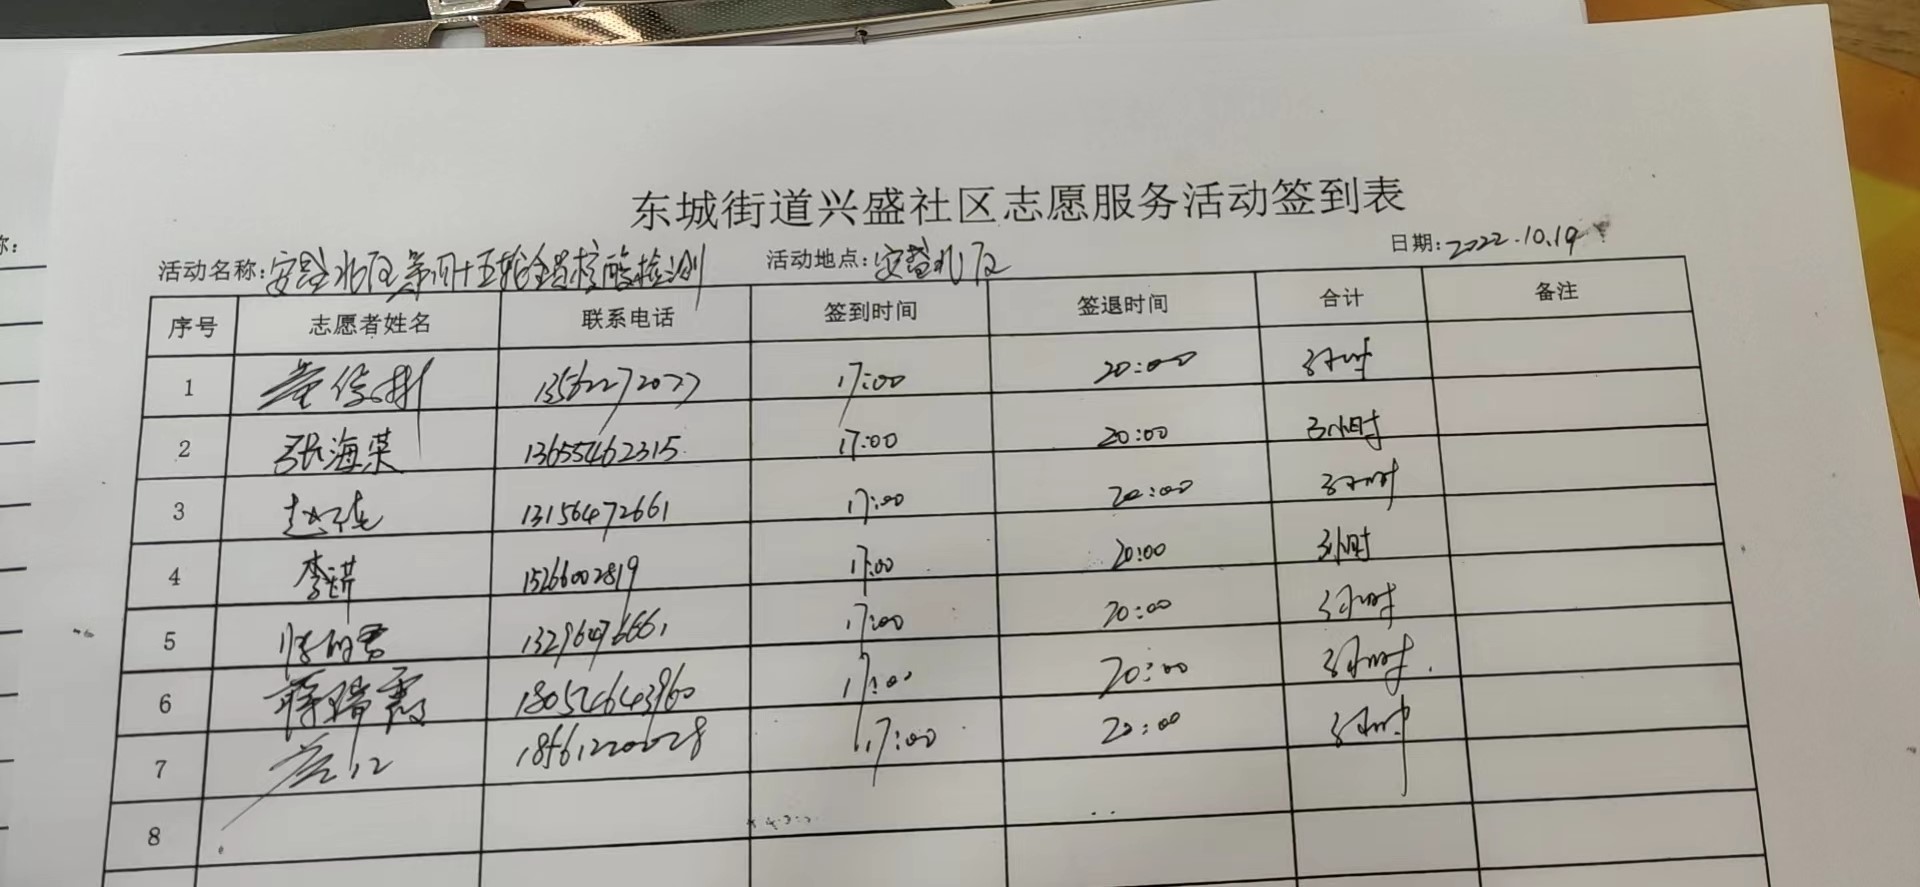 东城街道兴盛社区志愿服务活动签到表
活动名称:安盛北区第四十五轮全员核酸检测 活动地点:安盛北区 日期:2022.10.19
序号 志愿者姓名 联系电话 签到时间 签退时间 合计 备注
1 17:00 20:00 3小时
2 张海荣 13655462315 17:00 20:00 3小时
3 13156472661 17:00 20:00 3小时
4 15266002819 17:00 20:00 3小时
5 17:00 20:00 3小时
6 蒋瑞霞 18054643960 17:00 20:00 3小时.
7 17:00 20:00 3小时
8